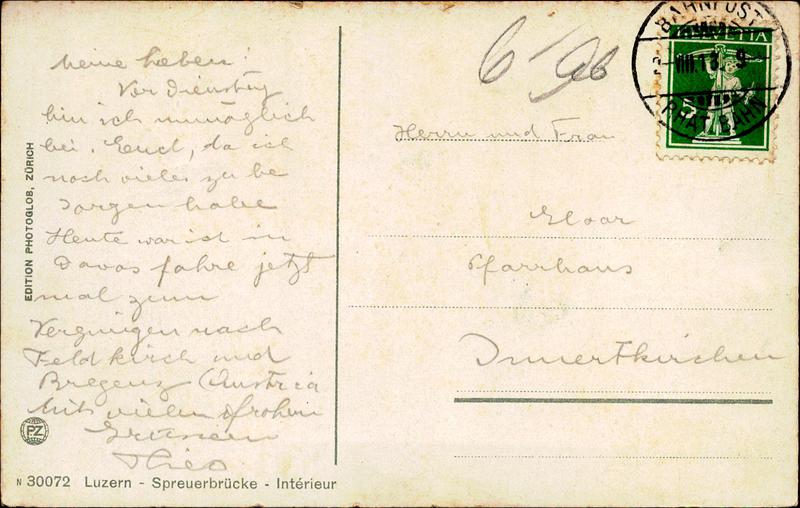 Meine Lieben!
Vor Dienstag
bin ich unmöglich
bei Euch, da ich
noch vieles zu be
sorgen habe
Heute war ich in
Davos fahre jetzt
mal zum
Vergnügen nach
Feldkirch und
Bregenz (Austria
Mit vielen frohen
Grüssen
Theo
EDITION PHOTOGLOB, ZÜRICH
PZ
N 30072 Luzern - Spreuerbrücke - Intérieur
BAHNPOST
HELVETIA
VIII.13. 9
5
RHÄT. BAHN
Herrn und Frau
Pfarrhaus
Innertkirchen